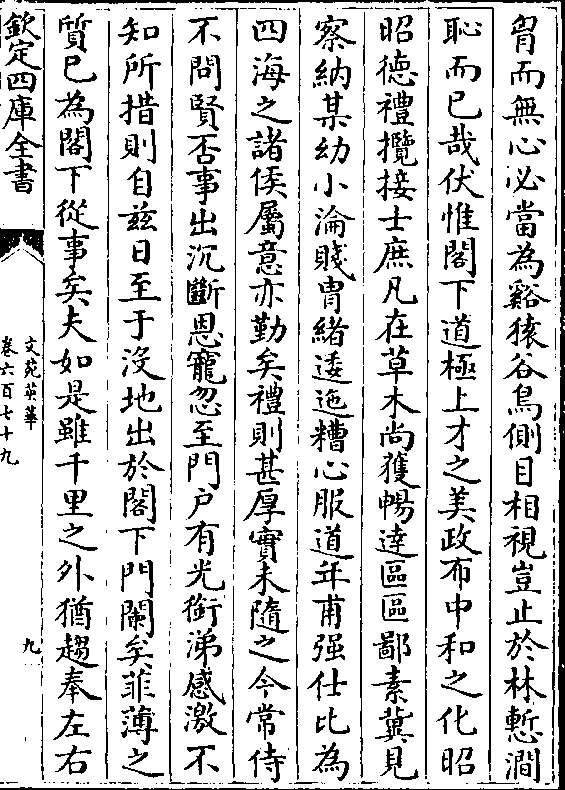 胷而無心必當為谿猿谷鳥側目相視豈止於林慙澗
恥而已哉伏惟閤下道極上才之美政布中和之化昭
昭德禮攬接士庶凡在草木尚獲暢達區區鄙素冀見
察納某幼小淪賤胄緒逶迤糟心服道年甫强仕比為
四海之諸侯屬意亦勤矣禮則甚厚實未隨之今常侍
不問賢否事出沉斷恩寵忽至門户有光銜涕感激不
知所措則自兹日至于沒地出於閤下門闌矣菲薄之
質已為閤下從事矣夫如是雖千里之外猶趨奉左右
欽定四庫全書
文苑英華
卷六百七十九
九